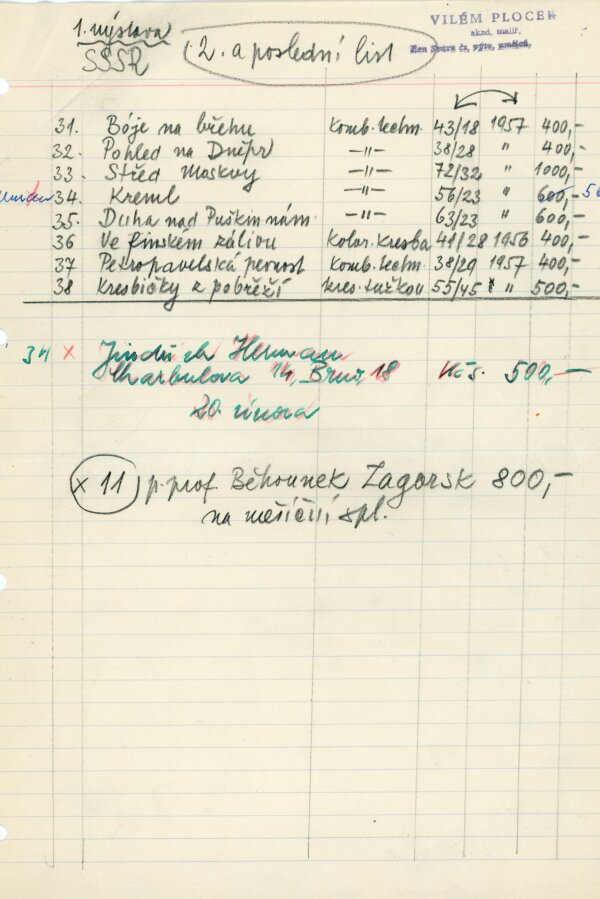 1. výstava
SSSR
2. a poslední list
VILÉM PLOCEK
akad. malíř,
člen Svazu čs. výtv. umělců,
31. Bóje na břehu komb. techn. 43/18 1957 400,-
32. Pohled na Dněpr —"— 38/28 " 400,-
33. Střed Moskvy —"— 72/32 " 1000,-
34. Kreml —"— 56/23 " 600,-
35. Duha nad Puškin. nám. —"— 63/23 " 600,-
36 Ve finském zálivu Kolor. Kresba 41/28 1956 400,-
37 Petropavelská pevnost Komb. techn. 38/29 1957 400,-
38 Kresbičky z pobřeží kres. tužkou 55/45 " 500,-
34 x Jindřich Heřman
14, Brno 18 Kčs. 500,—
20. února
x 11 p. prof. Běhounek Zagorsk 800,-
na měsíční spl.